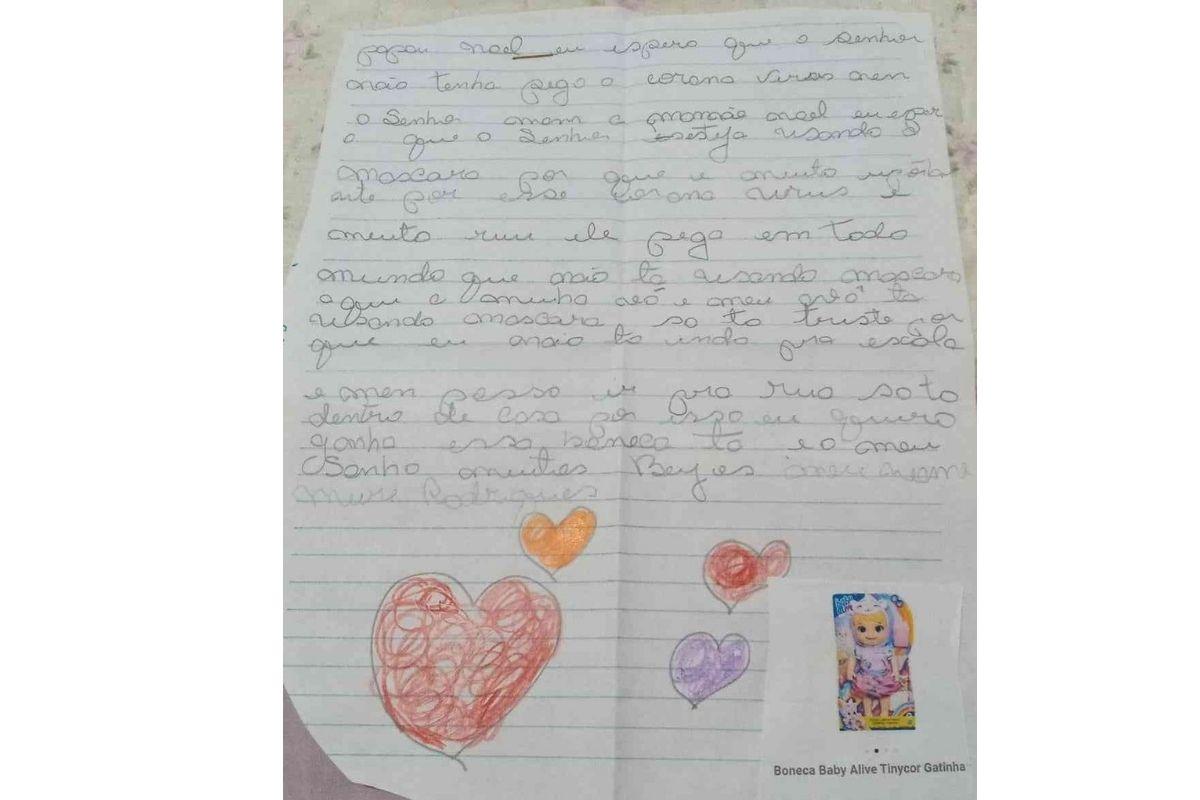 papai noel eu espero que o senhor
não tenha pego o corona viros nem
o Senhor mem a mamãe noel eu esper
o que o Senhor esteja usando a
mascara por que e muito
ante por esse corona virus e
muito ruu ele pega em todo
mundo que não ta usando mascara
aqui a minha avó e meu avô ta
usando mascara so to triste por
que eu não to indo pra escola
e nem posso ir pra rua so to
dentro de casa por isso eu quero
ganha essa boneca ta e o meu
Sonho muities Beyes meu nome
Rodrigues
Boneca Baby Alive Tinycor Gatinha